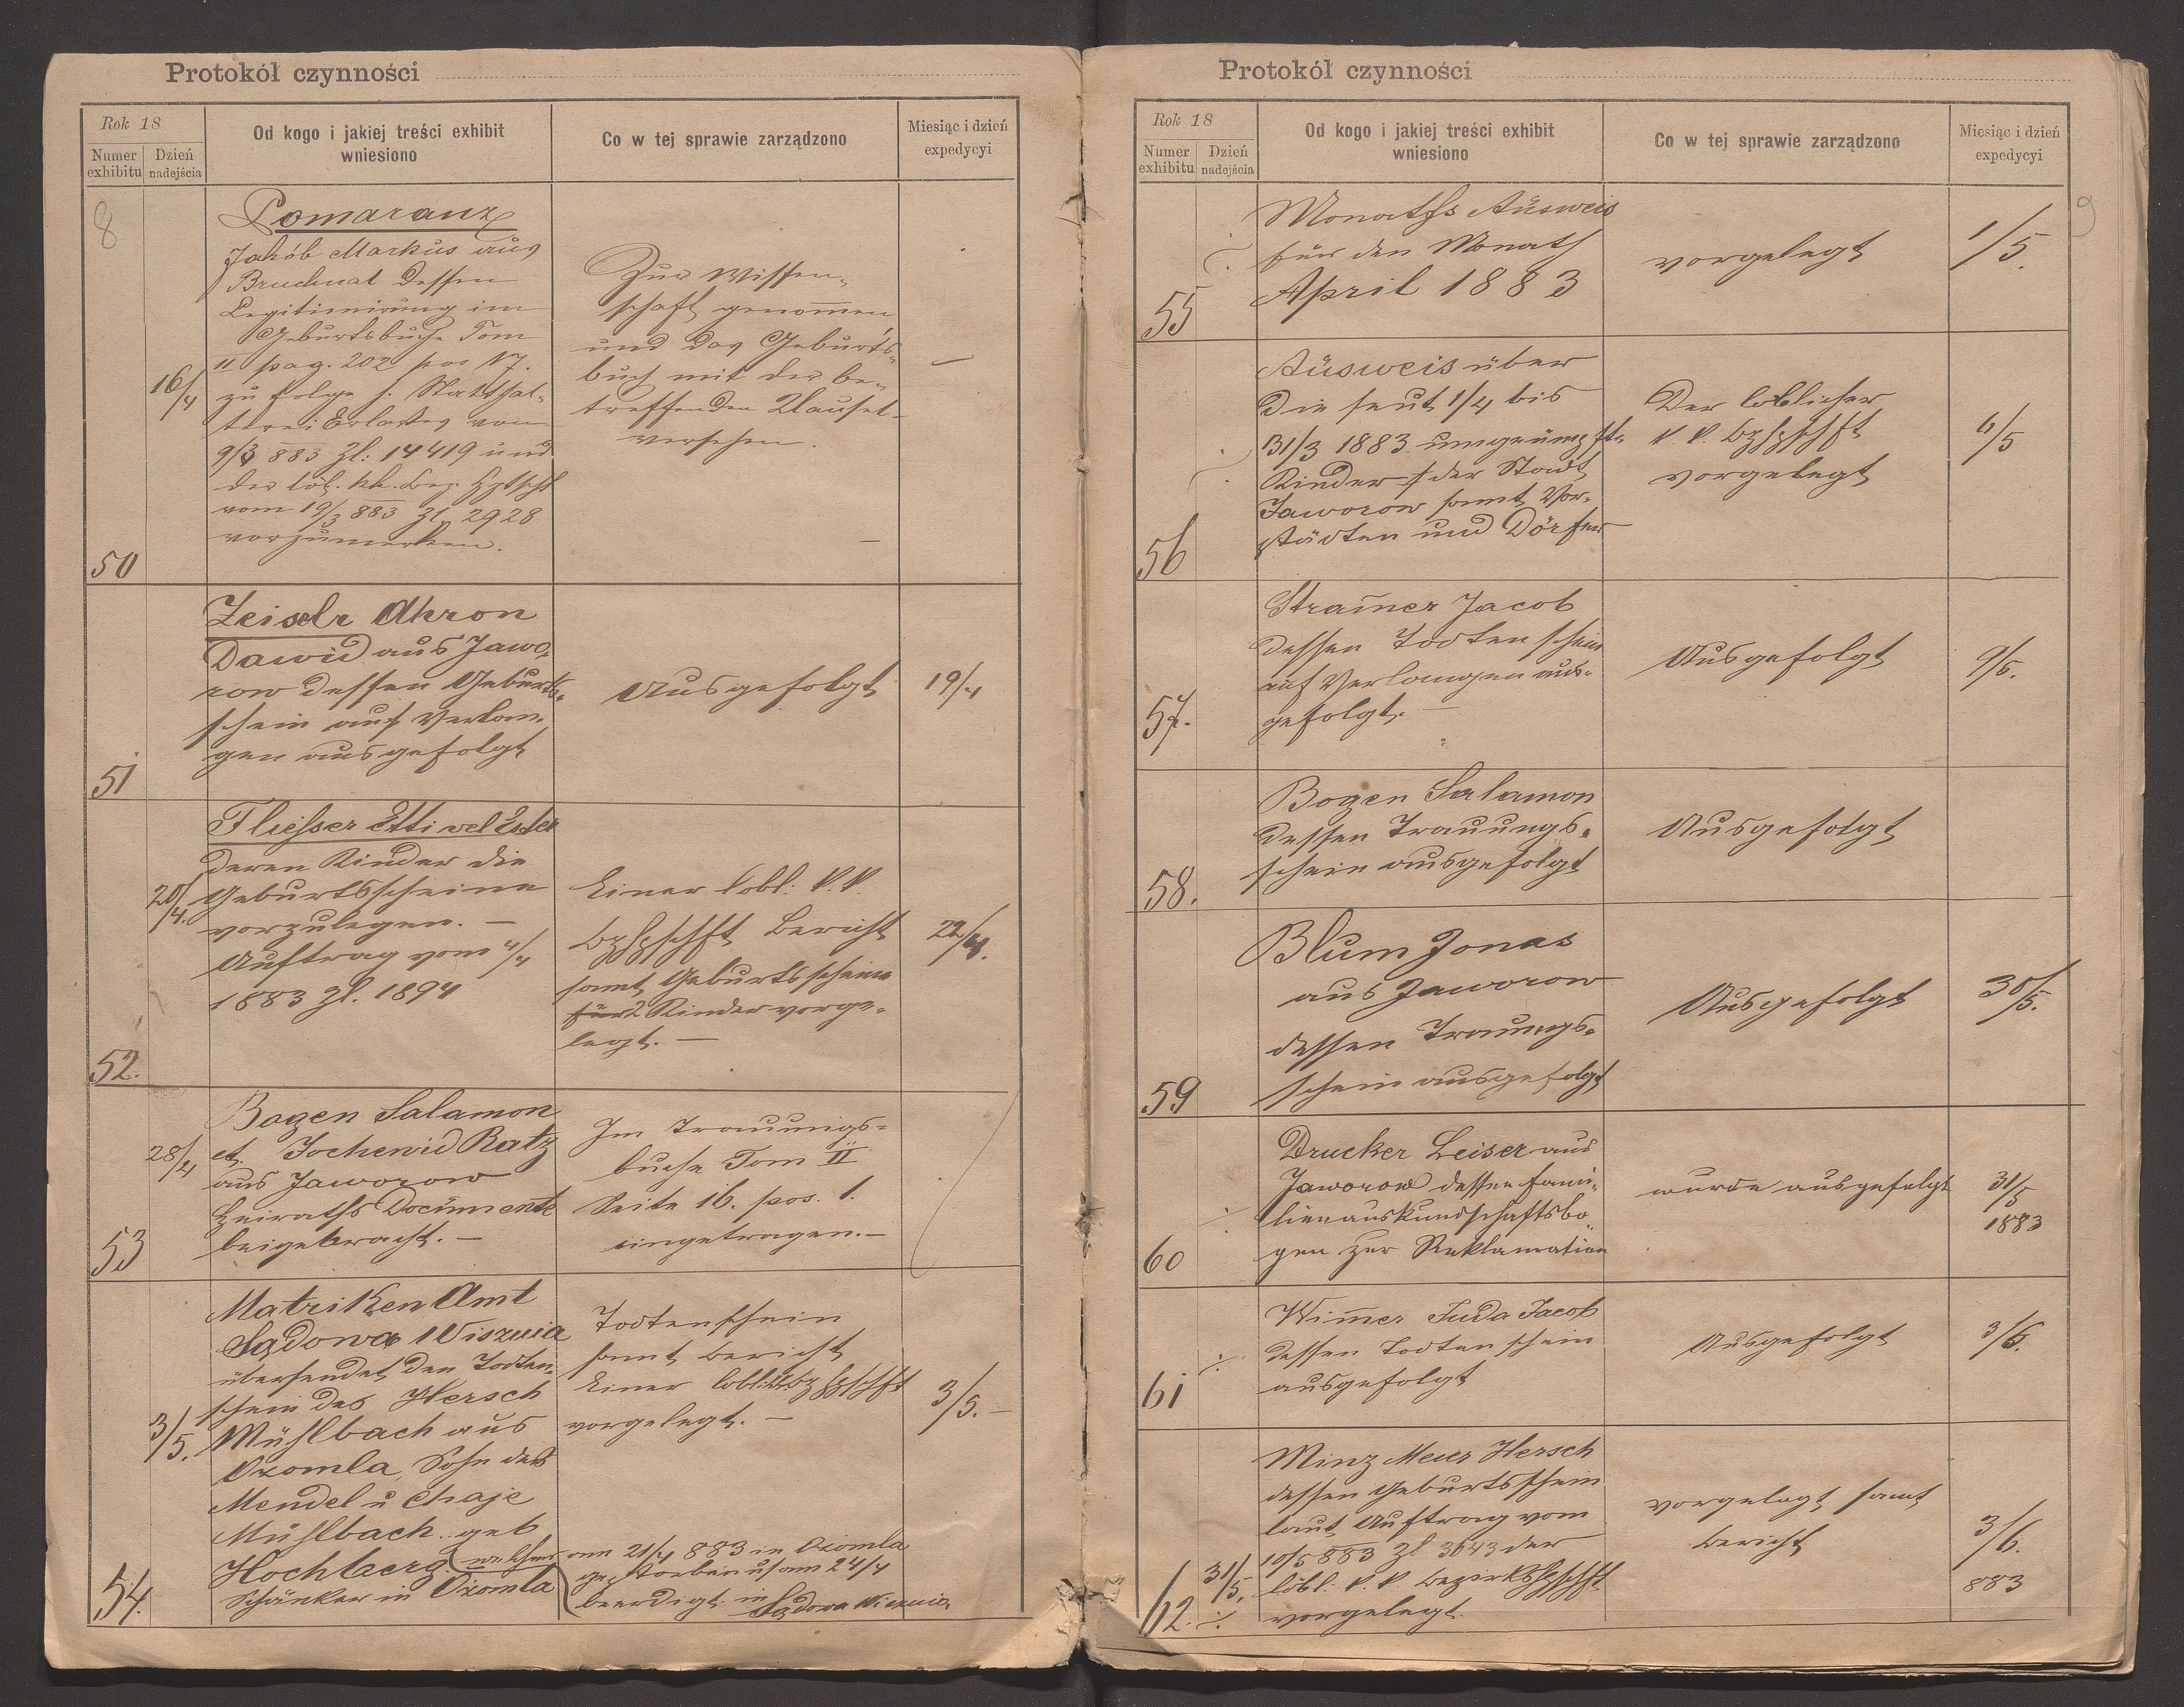 Protokół czynności
Rok 18
Numer exhibitu
Dzień nadejścia
Od kogo i jakiej treści exhibit wniesiono
Co w tej sprawie zarządzono
Miesiąc i dzień expedycyi
8
50
16/4
Pomaranz
Jakób Markus aus
Bruchnal dessen
Legitimirung im
Geburtsbuche Tom
II pag. 202 pos 17.
zu folge h. Statthal-
terei Erlaßes vom
9/3 883 Zl: 14419 und
der löb. kk. Bez. Hptschft
vom 19/3 883 Zl. 2928
vorzumerken.
Zur Wissen-
schaft genom̄en
und das Geburts-
buch mit der be-
treffenden Clausel
versehen.
—
51
Zeisslr Ahron
Dawid aus Jawo-
row dessen Geburts-
schein auf Verlan-
gen ausgefolgt
Ausgefolgt
19/4
52.
20/4.
Fliesser Etti vel Ester
deren Kinder die
Geburtsscheine
vorzulegen. —
Auftrag vom 4/4
1883 Zl. 1894
Einer lobl: k. k.
Bzhptschft Bericht
samt Geburtsscheine
für 2 Kinder vorge-
legt. —
22/4.
53
28/4
Bogen Salamon
et. Jochewid Ratz
aus Jaworow
Heiraths Documente
beigebracht. —
Im Trauungs-
buche Tom II
Seite 16. pos. 1.
eingetragen. —
54.
3/5.
Matriken Amt
Sądowa Wisznia
übersendet den Todten-
schein des Hersch
Mühlbach aus
Ożomla, Sohn des
Mendel u Chaje
Mühlbach geb
Hochberg (welcher
Schänker in Ożomla
Todtenschein
samt Bericht
Einer lobl: kk Bz Hptschft
vorgelegt. —
am 21/4 883 in Ożomla
gestorben u am 24/4
beerdigt in
Sądowa Wisznia
3/5. —
Protokół czynności
Rok 18
Numer exhibitu
Dzień nadejścia
Od kogo i jakiej treści exhibit wniesiono
Co w tej sprawie zarządzono
Miesiąc i dzień expedycyi
9
55
Monaths Ausweis
für den Monath
April 1883
vorgelegt
1/5.
56
Ausweis über
die seut 1/4 bis
31/3 1883 umgeimpfte
Kinder der Stadt
Jaworow samt Vor-
städten und Dörfer
Der loblicher
k. k. Bzhptschft
vorgelegt
6/5
57.
Stram̄er Jacob
dessen Todtenschein
auf Verlangen aus-
gefolgt. —
Ausgefolgt
9/5.
58.
Bogen Salamon
dessen Trauungs-
schein ausgefolgt
Ausgefolgt
59
Blum Jonas
aus Jaworow
dessen Trauungs-
schein ausgefolgt
Ausgefolgt
30/5.
60
Drucker Leiser aus
Jaworow dessen Fami-
lienauskundschaftsbo-
gen zur Reklamation
wurde ausgefolgt
31/5
1883
61
Wim̄er Juda Jacob
dessen Todtenschein
ausgefolgt
Ausgefolgt
3/6.
62.
31/5.
Minz Meier Hersch
dessen Geburtsschein
laut Auftrag vom
10/5 883 Zl 3643 der
löbl: k. k. Bezirkshptschft
vorgelegt.
vorgelegt samt
Bericht
3/6.
883